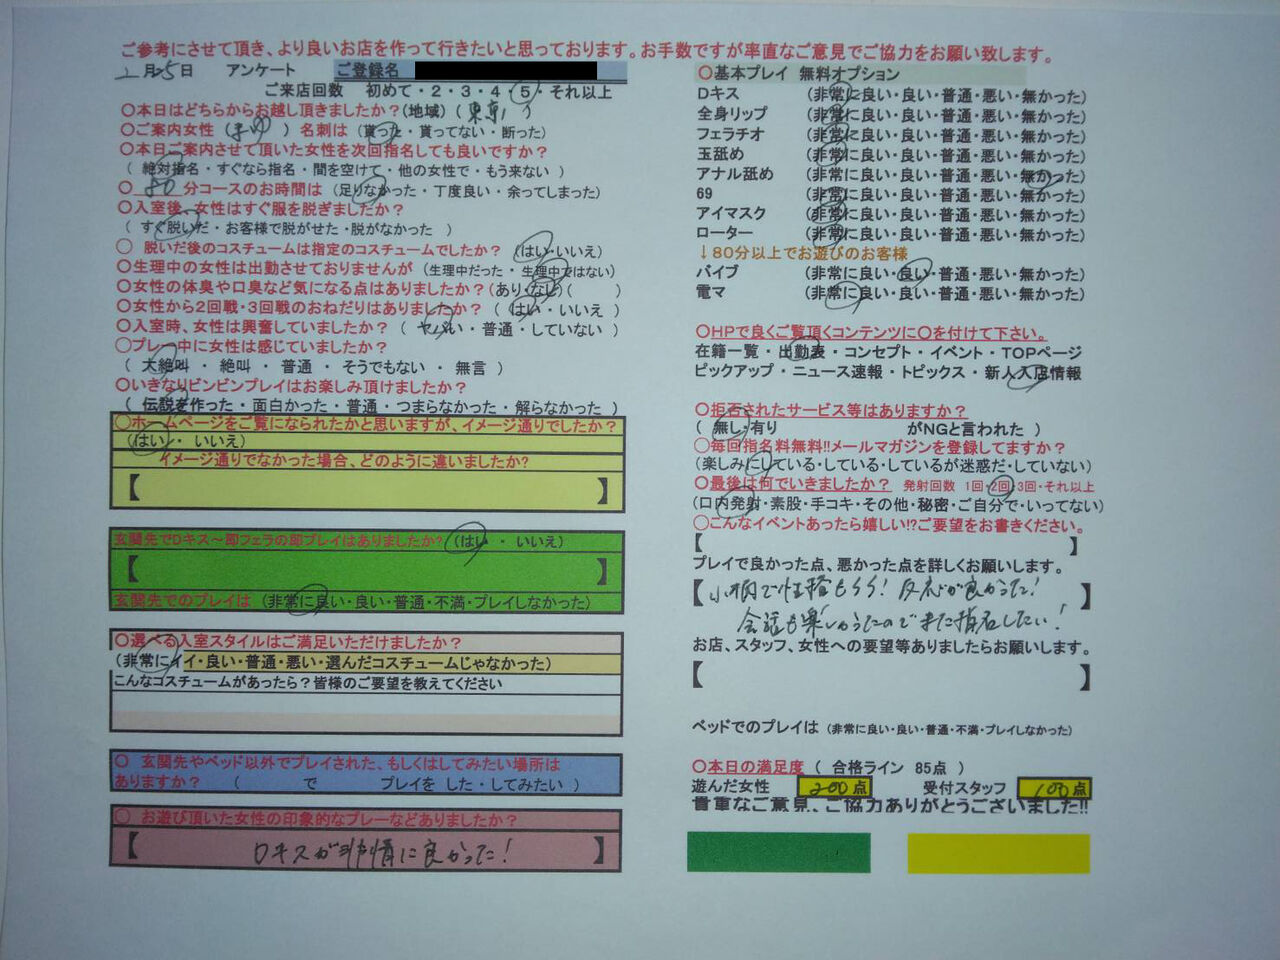 ご参考にさせて頂き、より良いお店を作って行きたいと思っております。お手数ですが率直なご意見でご協力をお願い致します。
2月25日 アンケート ご登録名
ご来店回数 初めて・2・3・4・5・それ以上
〇本日はどちらからお越し頂きましたか？(地域)（東京）
〇ご案内女性（まゆ）名刺は（貰った・貰ってない・断った）
〇本日ご案内させて頂いた女性を次回指名しても良いですか？
（絶対指名・すぐなら指名・間を空けて・他の女性で・もう来ない）
〇 80 分コースのお時間は（足りなかった・丁度良い・余ってしまった）
〇入室後、女性はすぐ服を脱ぎましたか？
（すぐ脱いだ・お客様で脱がせた・脱がなかった）
〇 脱いだ後のコスチュームは指定のコスチュームでしたか？（はい・いいえ）
〇生理中の女性は出勤させておりませんが（生理中だった・生理中ではない）
〇女性の体臭や口臭など気になる点はありましたか？（あり・なし）（　　）
〇女性から2回戦・3回戦のおねだりはありましたか？（はい・いいえ）
〇入室時、女性は興奮していましたか？（ヤバい・普通・していない）
〇プレー中に女性は感じていましたか？
（大絶叫・絶叫・普通・そうでもない・無言）
〇いきなりビンビンプレイはお楽しみ頂けましたか？
（伝説を作った・面白かった・普通・つまらなかった・解らなかった）
〇ホームページをご覧になられたかと思いますが、イメージ通りでしたか？
（はい・いいえ）
イメージ通りでなかった場合、どのように違いましたか？
【　　】
玄関先でDキス～即フェラの即プレイはありましたか？（はい・いいえ）
【　　】
玄関先でのプレイは（非常に良い・良い・普通・不満・プレイしなかった）
〇選べる入室スタイルはご満足いただけましたか？
（非常にイイ・良い・普通・悪い・選んだコスチュームじゃなかった）
こんなコスチュームがあったら？皆様のご要望を教えてください
〇 玄関先やベッド以外でプレイされた、もしくはしてみたい場所は
ありますか？（　　で　　プレイを した・してみたい）
〇 お遊び頂いた女性の印象的なプレーなどありましたか？
【 Dキスが非常に良かった！ 】
〇基本プレイ 無料オプション
Dキス （非常に良い・良い・普通・悪い・無かった）
全身リップ （非常に良い・良い・普通・悪い・無かった）
フェラチオ （非常に良い・良い・普通・悪い・無かった）
玉舐め （非常に良い・良い・普通・悪い・無かった）
アナル舐め （非常に良い・良い・普通・悪い・無かった）
69 （非常に良い・良い・普通・悪い・無かった）
アイマスク （非常に良い・良い・普通・悪い・無かった）
ローター （非常に良い・良い・普通・悪い・無かった）
↓80分以上でお遊びのお客様
バイブ （非常に良い・良い・普通・悪い・無かった）
電マ （非常に良い・良い・普通・悪い・無かった）
〇HPで良くご覧頂くコンテンツに〇を付けて下さい。
在籍一覧・出勤表・コンセプト・イベント・TOPページ
ピックアップ・ニュース速報・トピックス・新人入店情報
〇拒否されたサービス等はありますか？
（無し・有り　　がNGと言われた）
〇毎回指名料無料!!メールマガジンを登録してますか？
（楽しみにしている・している・しているが迷惑だ・していない）
〇最後は何でいきましたか？ 発射回数 1回・2回・3回・それ以上
（口内発射・素股・手コキ・その他・秘密・ご自分で・いってない）
〇こんなイベントあったら嬉しい!?ご要望をお書きください。
【　　】
プレイで良かった点、悪かった点を詳しくお願いします。
【 小柄で性格も 反応が良かった！ 】
会話も楽しかったのでまた指名したい！
お店、スタッフ、女性への要望等ありましたらお願いします。
【　　】
ベッドでのプレイは（非常に良い・良い・普通・不満・プレイしなかった）
〇本日の満足度（ 合格ライン 85点 ）
遊んだ女性 200点 受付スタッフ 100点
貴重なご意見、ご協力ありがとうございました!!